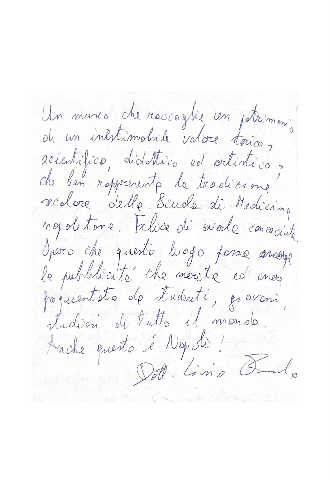 Un museo che raccoglie un patrimonio
di un inestimabile valore storico,
scientifico, didattico ed artistico,
che ben rappresenta la tradizione
secolare della Scuola di Medicina
napoletana. Felice di averla conosciuta.
Spero che questo luogo possa avere
la pubblicità che merita ed essere
frequentato da studenti, giovani,
studiosi di tutto il mondo.
Anche questo è Napoli!
Dott.